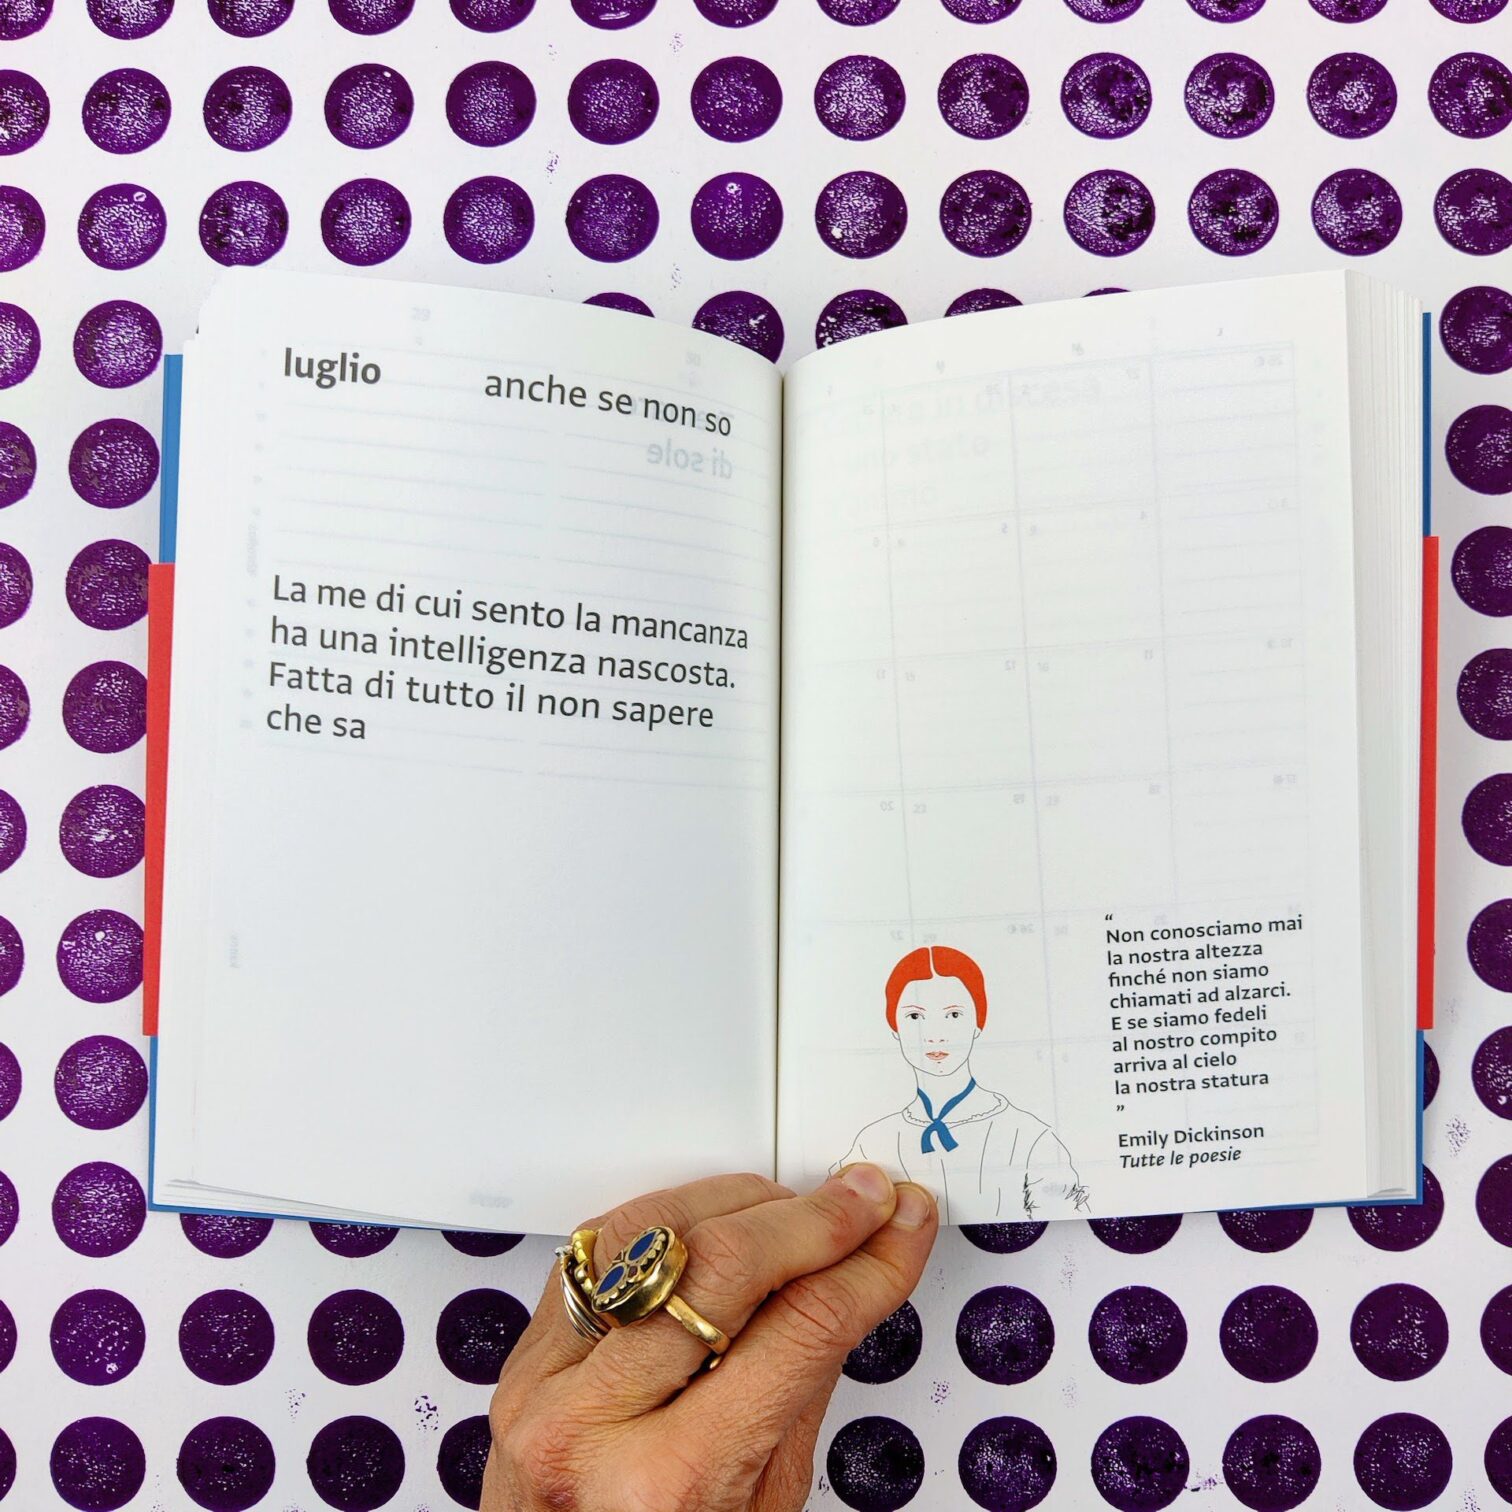 luglio
anche se non so
di sole
La me di cui sento la mancanza
ha una intelligenza nascosta.
Fatta di tutto il non sapere
che sa
“
Non conosciamo mai
la nostra altezza
finché non siamo
chiamati ad alzarci.
E se siamo fedeli
al nostro compito
arriva al cielo
la nostra statura
”
Emily Dickinson
Tutte le poesie